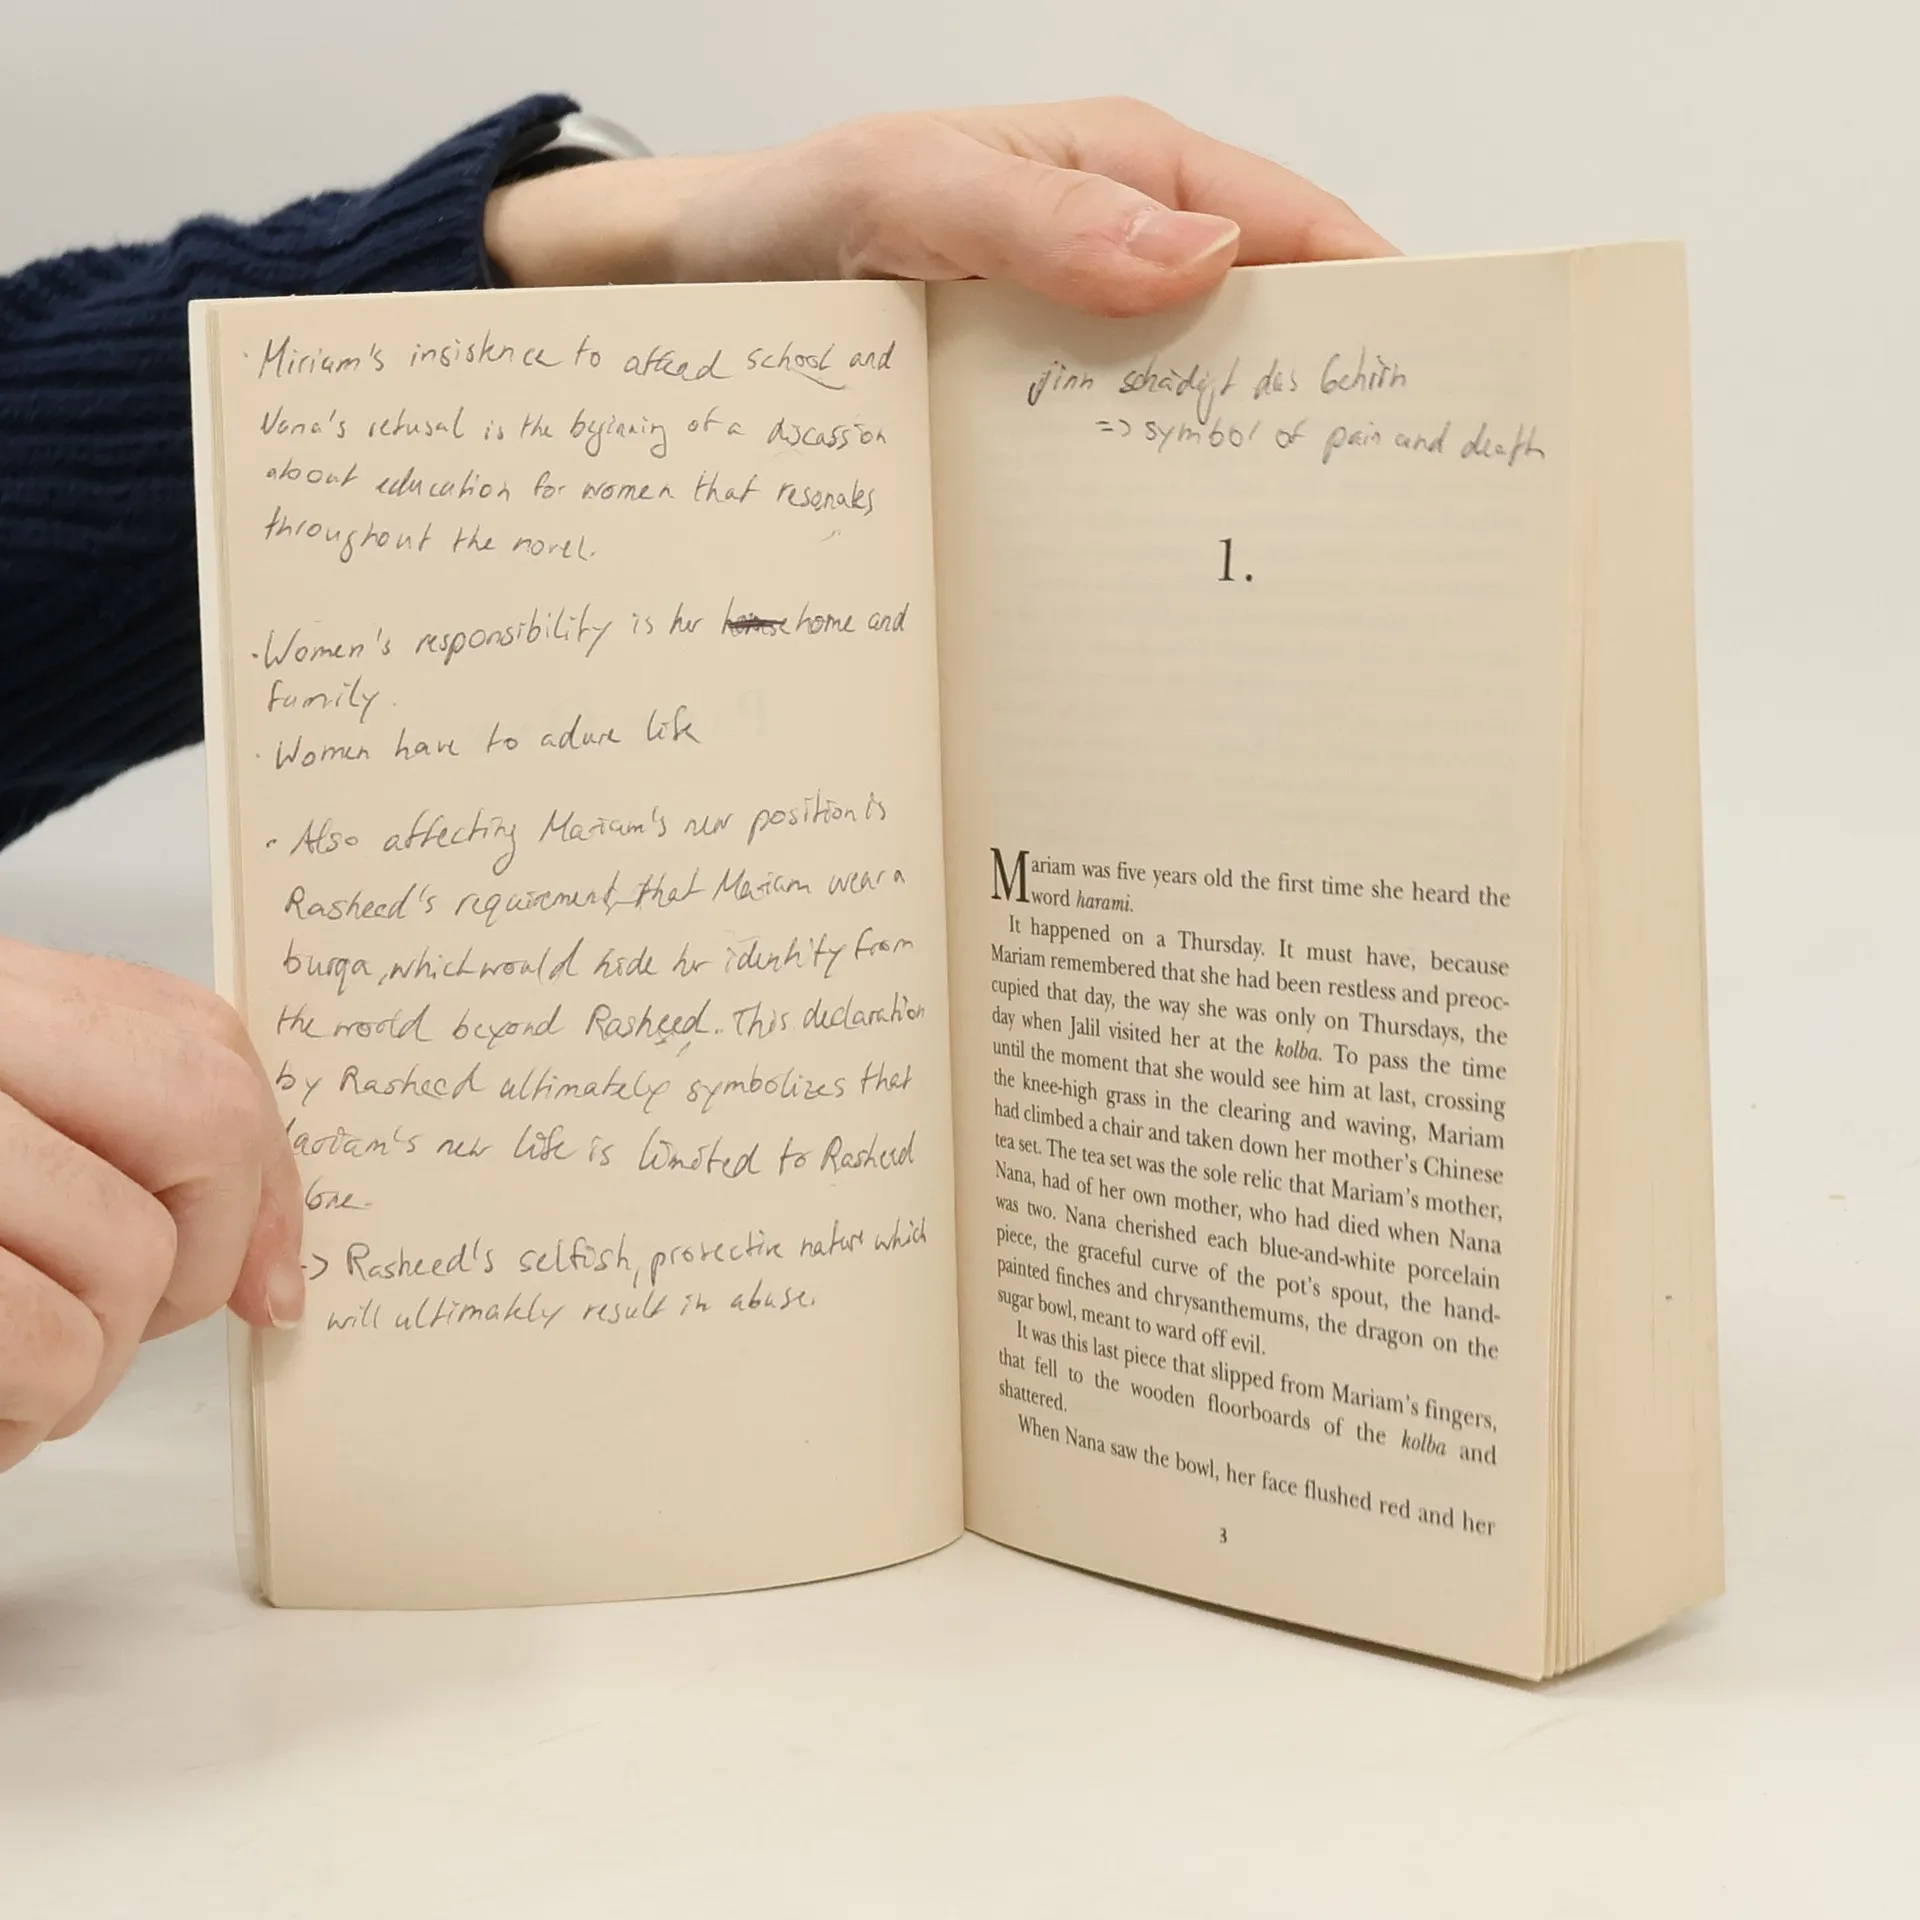 · Miriam's insistence to attead school and
Nana's refusal is the beginning of a discussion
about education for women that resonates
throughout the novel.
· Women's responsibility is her house home and
family.
· Women have to adure life
· Also affecting Mariam's new position is
Rasheed's requirement, that Mariam wear a
burqa, which would hide her identity from
the world beyond Rasheed. This declaration
by Rasheed ultimately symbolizes that
ariam's new life is limited to Rasheed
-> Rasheed's selfish, protective nature which
will ultimately result in abuse.
jinn schädigt das Gehirn
=> symbol of pain and death
1.
Mariam was five years old the first time she heard the
word harami.
It happened on a Thursday. It must have, because
Mariam remembered that she had been restless and preoc-
cupied that day, the way she was only on Thursdays, the
day when Jalil visited her at the kolba. To pass the time
until the moment that she would see him at last, crossing
the knee-high grass in the clearing and waving, Mariam
had climbed a chair and taken down her mother's Chinese
tea set. The tea set was the sole relic that Mariam's mother,
Nana, had of her own mother, who had died when Nana
was two. Nana cherished each blue-and-white porcelain
piece, the graceful curve of the pot's spout, the hand-
painted finches and chrysanthemums, the dragon on the
sugar bowl, meant to ward off evil.
It was this last piece that slipped from Mariam's fingers,
that fell to the wooden floorboards of the kolba and
shattered.
When Nana saw the bowl, her face flushed red and her
3